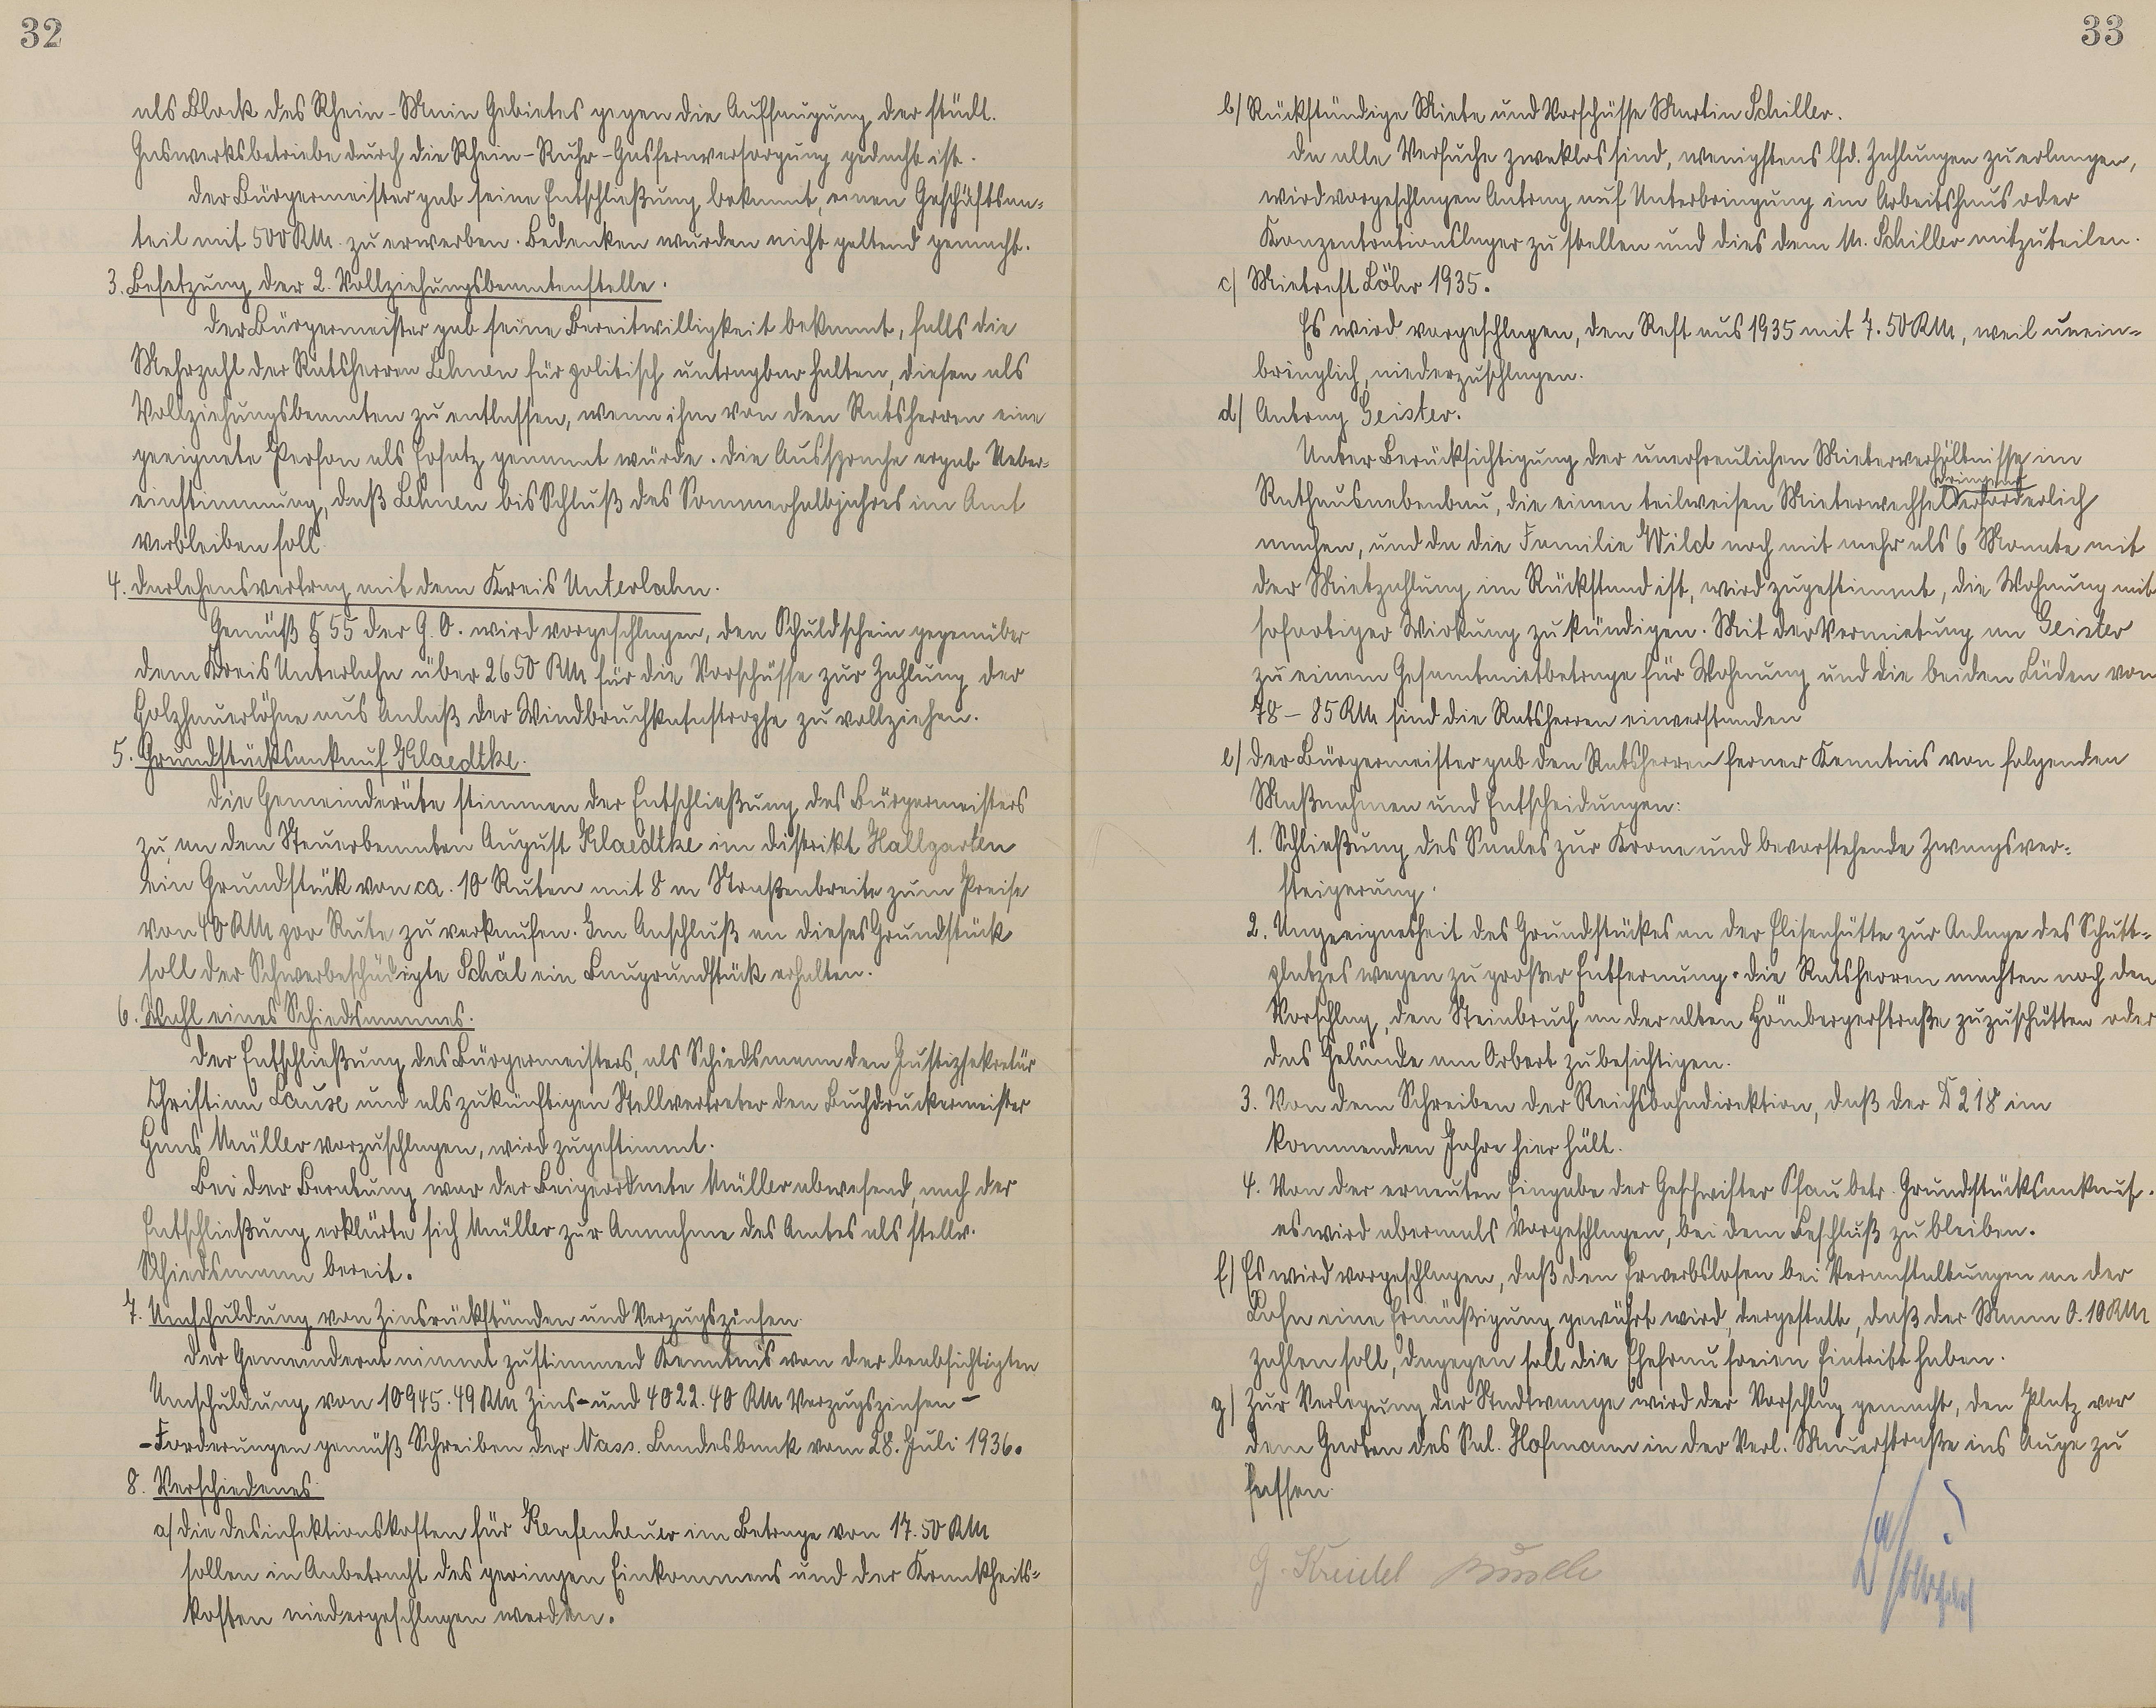 32
als Block des Rhein-Main Gebietes gegen die Aufsaugung der städt.
Gaswerksbetriebe durch die Rhein-Ruhr-Gasfernversorgung gedacht ist.
Der Bürgermeister gab seine Entschließung bekannt, einen Geschäftsan-
teil mit 500 RM zu erwerben. Bedenken wurden nicht geltend gemacht.
3. Besetzung der 2. Vollziehungsbeamtenstelle.
Der Bürgermeister gab seine Bereitwilligkeit bekannt, falls die
Mehrzahl der Ratsherren Lehnen für politisch untragbar halten, diesen als
Vollziehungsbeamten zu entlassen, wenn ihm von den Ratsherren eine
geeignete Person als Ersatz genannt würde. Die Aussprache ergab Ueber-
einstimmung, daß Lehnen bis Schluß des Sommerhalbjahres im Amt
verbleiben soll
4. Darlehensvertrag mit dem Kreis Unterlahn.
Gemäß § 55 der G.O. wird vorgeschlagen, den Schuldschein gegenüber
dem Kreis Unterlahn über 2650 RM für die Vorschüsse zur Zahlung der
Holzhauerlöhne aus Anlaß der Windbruchkatastrophe zu vollziehen.
5. Grundstücksankauf Klaedtke.
Die Gemeinderäte stimmen der Entschließung des Bürgermeisters
zu, an den Steuerbeamten August Klaedtke im Distrikt Hallgarten
ein Grundstück von ca. 10 Ruten mit 8 m Straßenbreite zum Preise
von 40 RM pro Rute zu verkaufen. Im Anschluß an dieses Grundstück
soll der Schwerbeschädigte Schäl ein Baugrundstück erhalten.
6. Wahl eines Schiedsmannes.
Der Entschließung des Bürgermeisters, als Schiedsmann den Justizsekretär
Christian Lause und als zukünftigen Stellvertreter den Buchdruckermeister
Hans Müller vorzuschlagen, wird zugestimmt.
Bei der Beratung war der Beigeordnete Müller abwesend, nach der
Entschließung erklärte sich Müller zur Annahme des Amtes als stellv.
Schiedsmann bereit.
7. Umschuldung von Zinsrückständen und Verzugszinsen
Der Gemeinderat nimmt zustimmend Kenntnis von der beabsichtigten
Umschuldung von 10945.49 RM Zins- und 4022.40 RM Verzugszinsen-
-Forderungen gemäß Schreiben der Nass. Landesbank vom 28. Juli 1936.
8. Verschiedenes.
a/ Die Desinfektionskosten für Kenfenheuer im Betrage von 17.50 RM
sollen in Anbetracht des geringen Einkommens und der Krankheits-
kosten niedergeschlagen werden.
33
b/ Rückständige Miete und Vorschüsse Martin Schiller.
Da alle Versuche zweklos sind, wenigstens lfd. Zahlungen zu erlangen,
wird vorgeschlagen Antrag auf Unterbringung im Arbeitshaus oder
Konzentrationslager zu stellen und dies dem M. Schiller mitzuteilen.
c/ Mietrest Löhr 1935.
Es wird vorgeschlagen, den Rest aus 1935 mit 7.50 RM, weil unein-
bringlich, niederzuschlagen.
d/ Antrag Geister.
Unter Berücksichtigung der unerfreulichen Mieterverhältnisse im
dringend
Rathausnebenbau, die einen teilweisen Mieterwechsel erforderlich
machen, und da die Familie Wild noch mit mehr als 6 Monate mit
der Mietzahlung im Rückstand ist, wird zugestimmt, die Wohnung mit
sofortiger Wirkung zu kündigen. Mit der Vermietung an Geister
zu einem Gesamtmietbetrage für Wohnung und die beiden Läden von
78 - 85 RM sind die Ratsherren einverstanden
e/ Der Bürgermeister gab den Ratsherren ferner Kenntnis von folgenden
Maßnahmen und Entscheidungen:
1. Schließung des Saales zur Krone und bevorstehende Zwangsver-
steigerung.
2. Ungeeignetheit des Grundstückes an der Elisenhütte zur Anlage des Schutt-
platzes wegen zu großer Entfernung. Die Ratsherren machten noch den
Vorschlag, den Steinbruch an der alten Hömbergerstraße zuzuschütten oder
das Gelände am Orbert zu besichtigen.
3. Von dem Schreiben der Reichsbahndirektion, daß der D 218 im
kommenden Jahre hier hält.
4. Von der erneuten Eingabe der Geschwister Pfau betr. Grundstücksankauf.
es wird abermals vorgeschlagen, bei dem Beschluß zu bleiben.
f/ Es wird vorgeschlagen, daß den Erwerbslosen bei Veranstaltungen an der
Lahn eine Ermäßigung gewährt wird, dergestalt, daß der Mann 0.10 RM
zahlen soll, dagegen soll die Ehefrau freien Eintritt haben.
g/ Zur Verlegung der Stadtwaage wird der Vorschlag gemacht, den Platz vor
dem Garten des Sal. Hofmann in der Verl. Mauerstraße ins Auge zu
fassen.
G. Kreidel